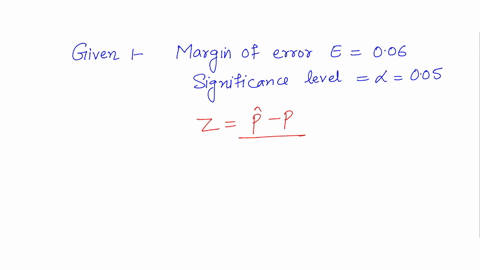 Given :- Margin of error E = 0.06
Significance level = α = 0.05
Z = p̂ - p